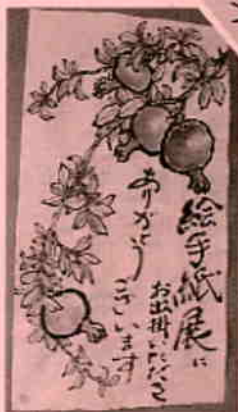 絵手紙展に
お出掛いただき
ありがとう
ございます